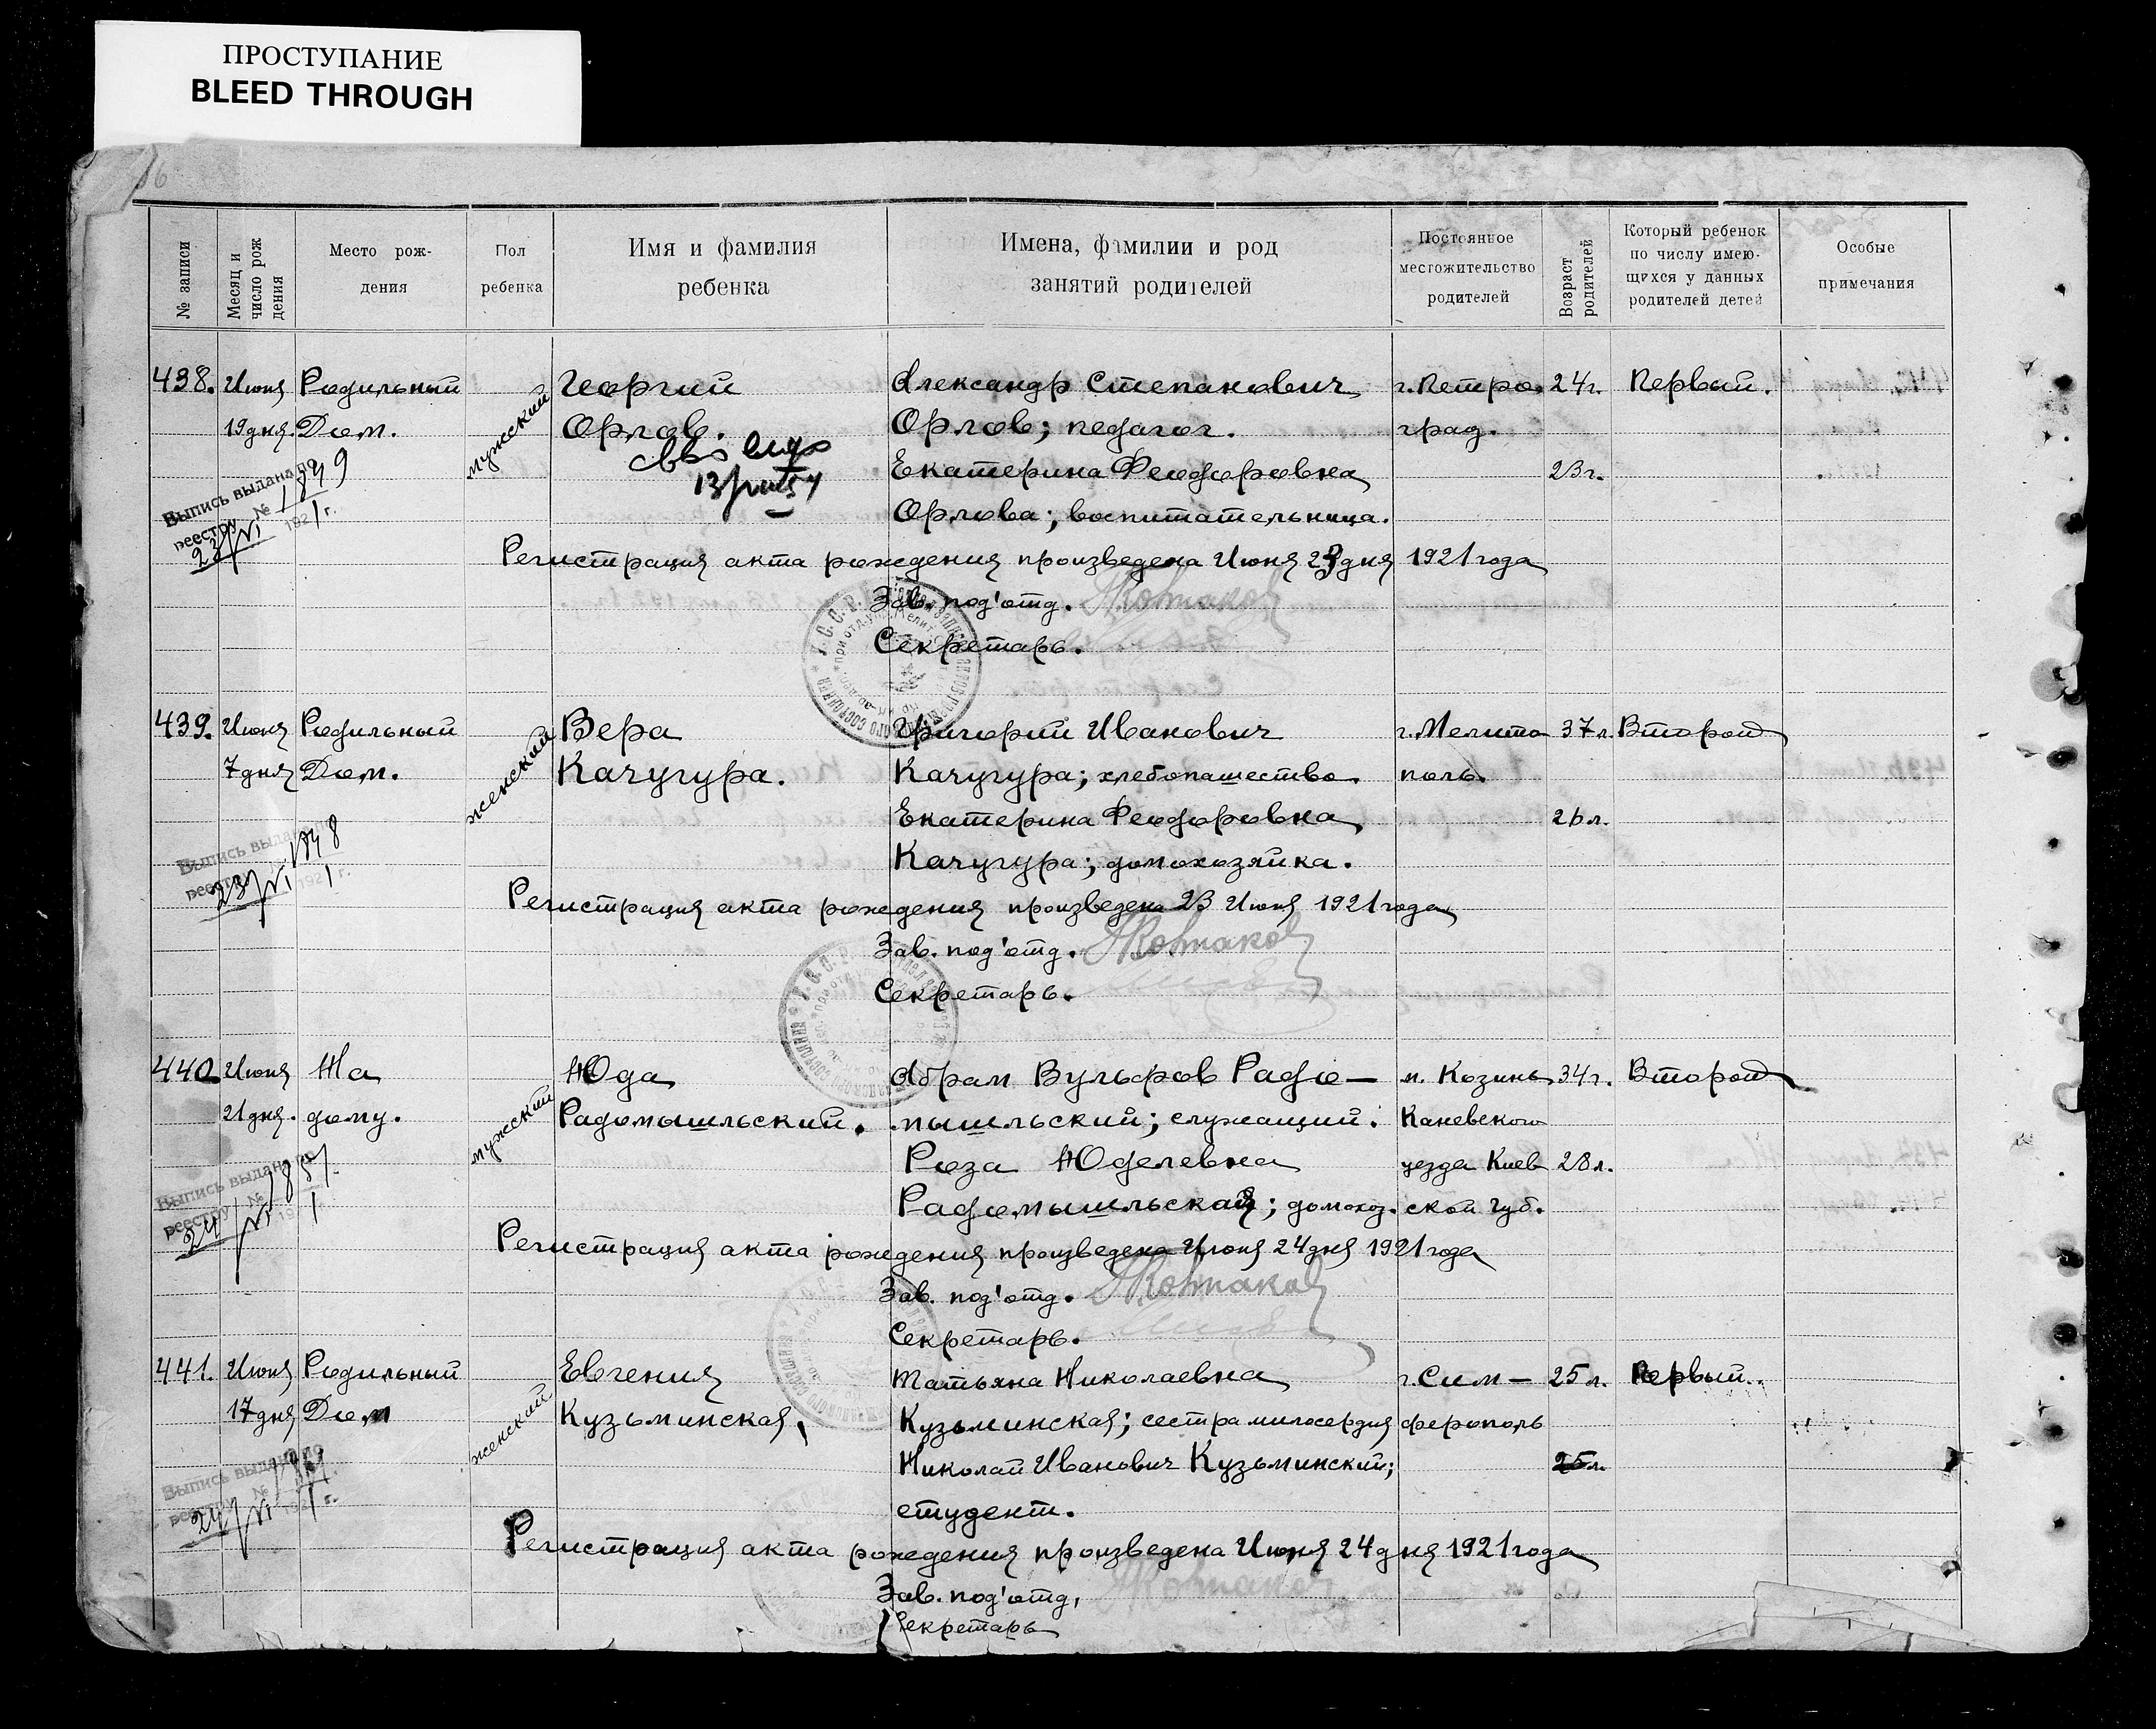 ПРОСТУПАНИЕ
BLEED THROUGH
№ записи
Месяц и число рож дения
Место рож-
дения
Пол
ребенка
Имя и фамилия
ребенка
Имена, фамилии и род
занятий родителей
Постоянное
местожительство
родителей
Возраст родителей
Который ребенок
по числу имею-
щихся у данных
родителей детей
Особые
примечания
438. Июня Родильный мужской Георгий Александр Степанович г. Петро 24г. Первый.
19 дня. Дом. Орлов. Орлов; педагог. град.
Екатерина Феодоровна 23г.
13/ 54
Орлова; воспитательница.
Выпись выдана по
реестру № 1849
23/VI 1921 г.
Регистрация акта рождения произведена Июня 23 дня 1921 года
Зав. под'отд.
Секретарь.
439. Июня Родильный женский Вера Григорий Иванович г. Мелито 37 л. Второй
7 дня Дом. Качугура. Качугура; хлебопашество. поль.
Екатерина Феодоровна 26 л.
Качугура; домохозяйка.
Выпись выдана по
реестру 1848
23/VI 1921 г.
Регистрация акта рождения произведена 23 Июня 1921 года
Зав. под'отд.
Секретарь.
440 Июня На мужской Юда Абрам Вульфов Радо- м. Козинь 34г. Второй
21 дня. дому. Радомышльский. мышльский; служащий. Каневского
Роза Юделевна уезда Киев 28 л.
Радомышльская; домохоз. ской губ.
Выпись выдана по
реестру № 1851
24/VI 1921
Регистрация акта рождения произведена Июня 24 дня 1921 года
Зав. под'отд.
Секретарь.
441. Июня Родильный женский Евгения Татьяна Николаевна г. Сим- 25 л. Первый.
17 дня Дом Кузьминская, Кузьминская; сестра милосердия ферополь
Николай Иванович Кузьминский; 25 л.
студент.
Выпись выдана по
реестру №
24/VI 1921 г.
Регистрация акта рождения произведена Июня 24 дня 1921 года
Зав. под'отд,
Секретарь